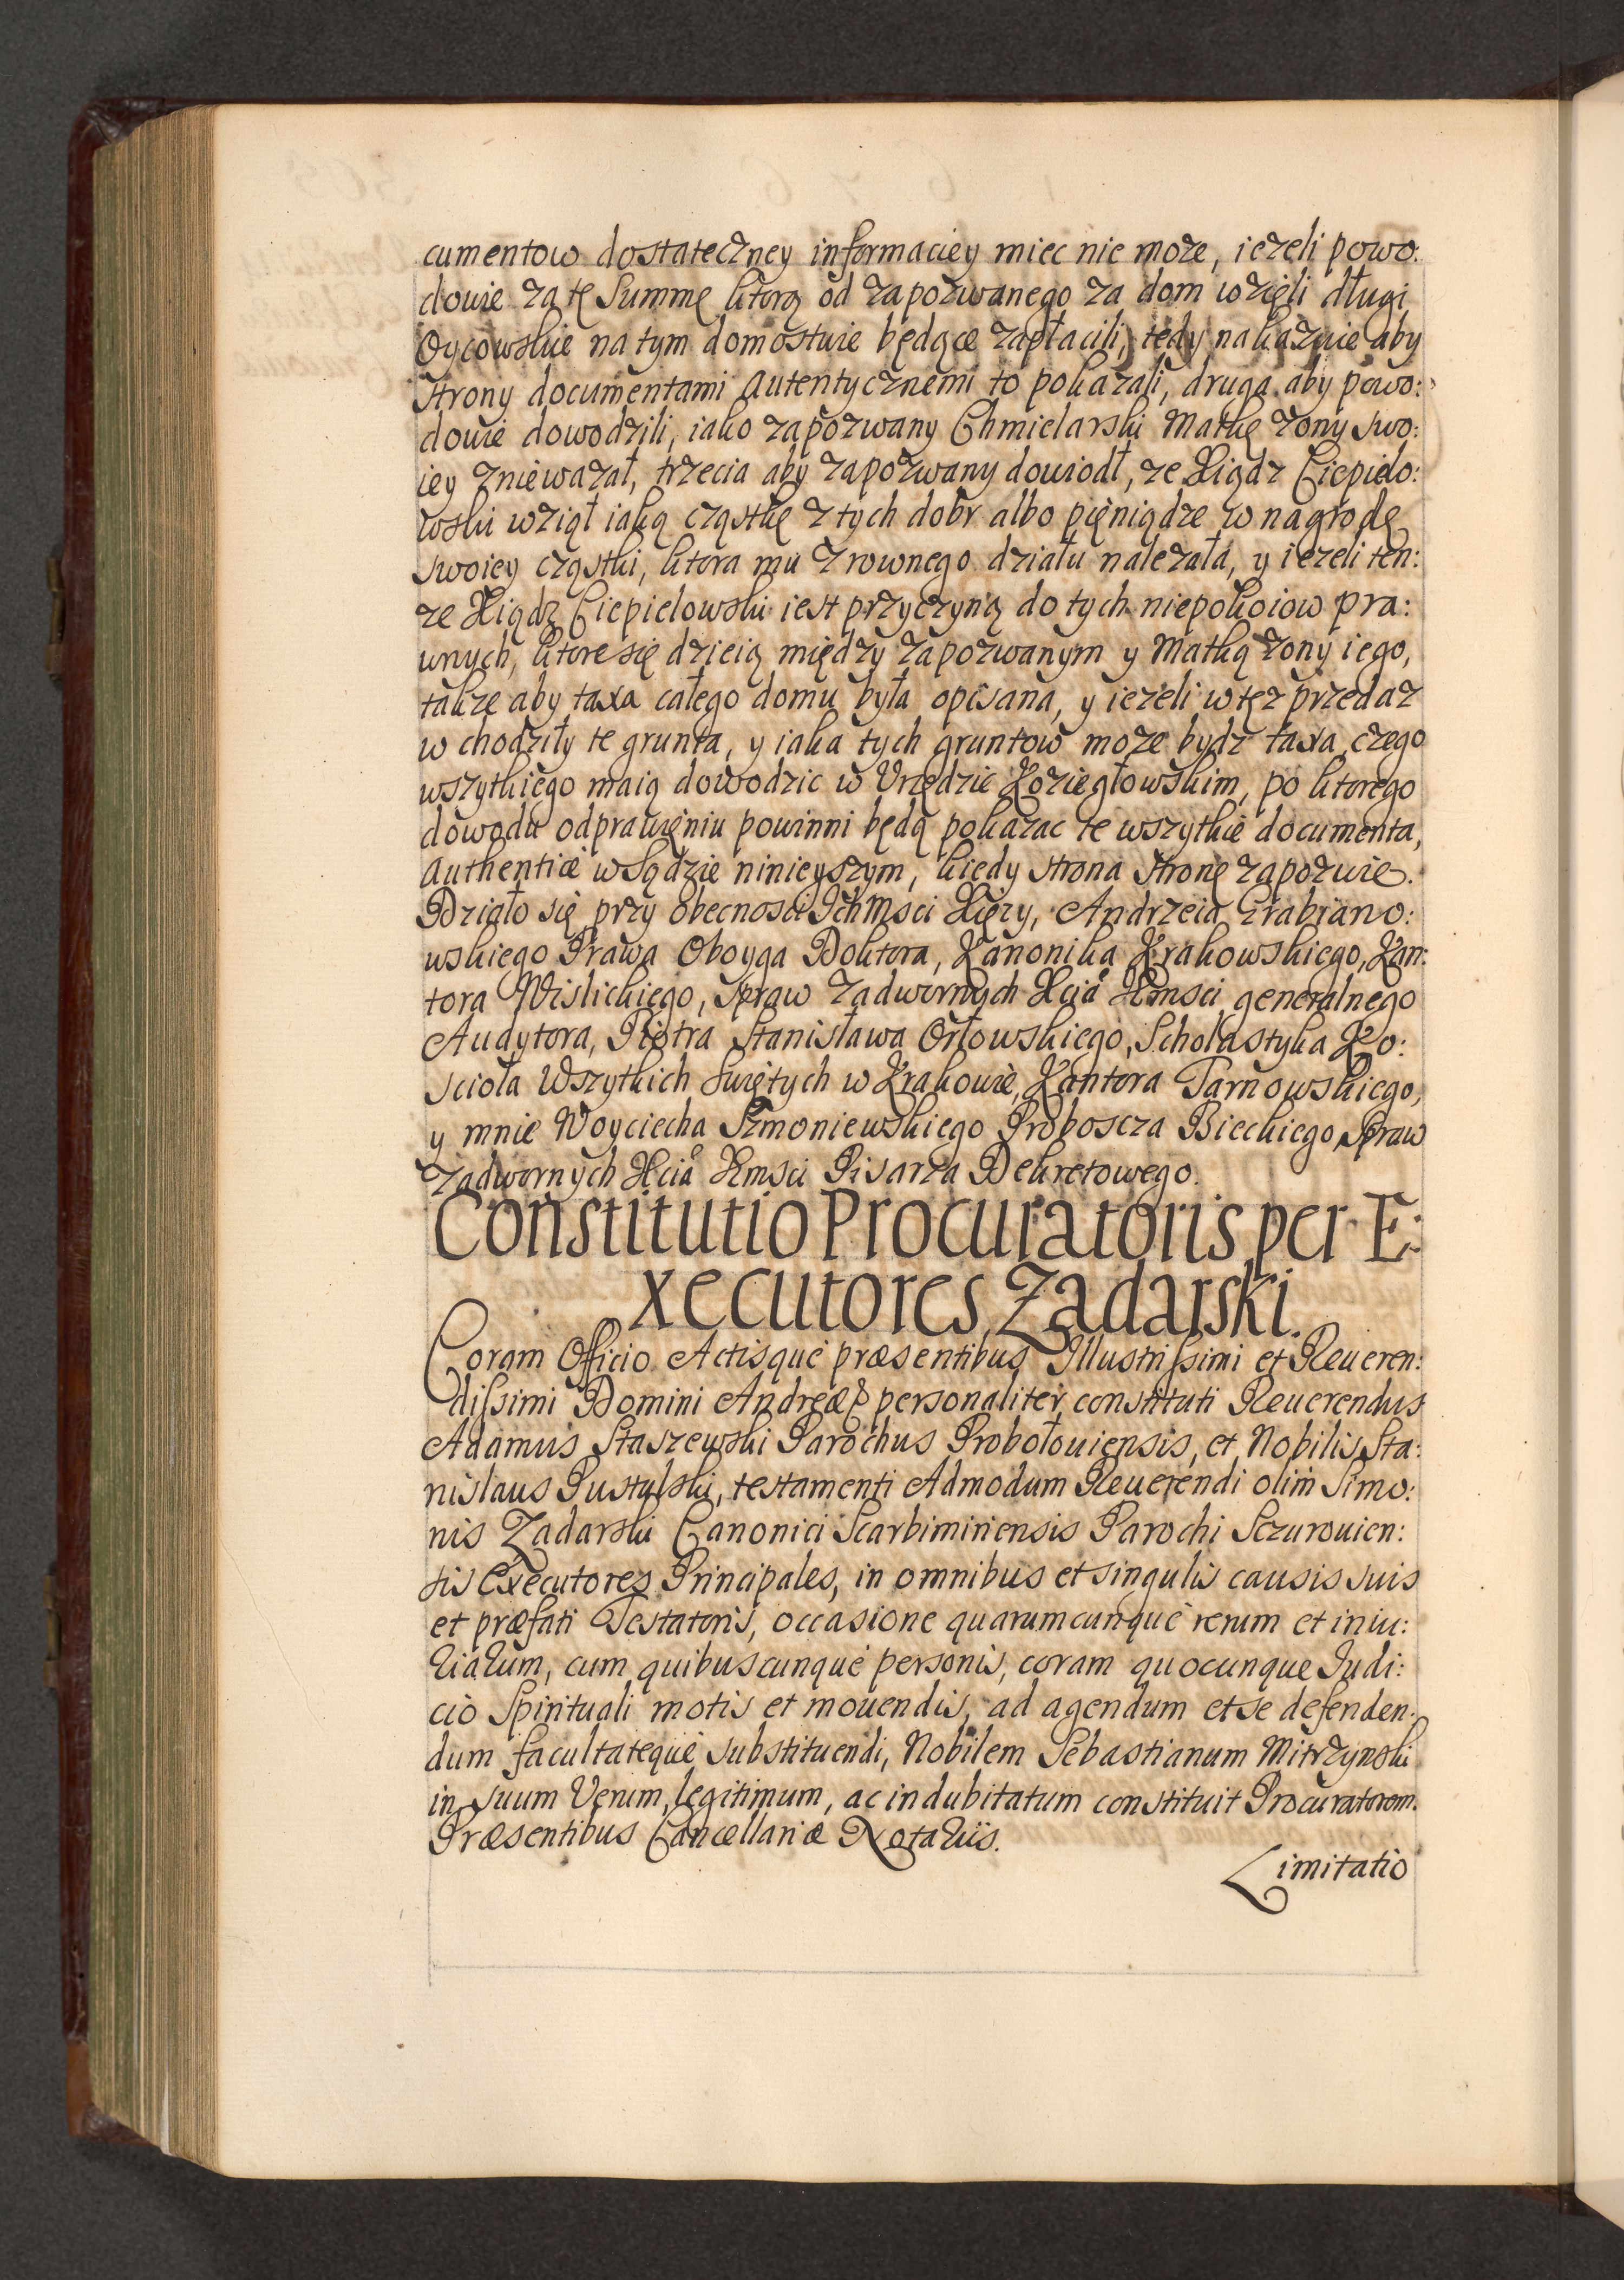 cumentow dostateczney informaciey miec nie może, ieżeli powo:
dowie za tę Summę ktorą od zapozwanego za dom wzięli długi
Oycowskie na tym domostwie będące zapłacili, tedy nakazuie aby
strony documentami autentycznemi to pokazali, druga aby powo:
dowie dowodzili, iako zapozwany Chmielarski Matkę żony swo:
iey znieważał, trzecia aby zapozwany dowiodł, ze Xiądz Ciepielo:
wski wziął iaką cząstkę z tych dobr albo pięniądze w nagrodę
swoiey cząstki, ktora mu z rownego działu należała, y ieżeli ten:
ze Xiądz Ciepielowski iest przyczyną do tych niepokoiow pra:
wnych, ktore się dzieią między zapozwanym y Matką żony iego,
takze aby taxa całego domu była opisana, y ieżeli w tęz przedaz
wchodziły te grunta, y iaka tych gruntow może bydz taxa, czego
wszytkiego maią dowodzic w Vrzędzie Koziegłowskim, po ktorego
dowodu odprawięniu powinni będą pokazac te wszytkie documenta,
authenticè w Sądzie ninieyszym, kiedy strona stronę zapozwie.
Działo się przy obecnosci Ichmsci Xięży, Andrzeia Grabiano:
wskiego Prawa Oboyga Doktora, Kanonika Krakowskiego, Kan:
tora Wislickiego, Spraw Zadwornych Xcia Jmsci generalnego
Audytora, Piotra Stanisława Orłowskiego, Scholastyka Ko:
scioła Wszytkich Swiętych w Krakowie, Kantora Tarnowskiego,
y mnie Woyciecha Szmoniewskiego Proboscza Bieckiego, Spraw
Zadwornych Xcia Jmsci Pisarza Dekretowego.
Constitutio Procuratoris per E:
xecutores Zadarski.
Coram Officio Actisque præsentibus Illustrissimi et Reueren:
dissimi Domini Andreæ & personaliter constituti Reuerendus
Adamus Staszewski Parochus Probołouiensis, et Nobilis Sta:
nislaus Pustulski, testamenti Admodum Reuerendi olim Simo:
nis Zadarski Canonici Scarbimiriensis Parochi Sczurouien:
sis Executores Principales, in omnibus et singulis causis suis
et præfati Testatoris, occasione quarumcunque rerum et iniu:
riarum, cum quibuscunque personis, coram quocunque Iudi:
cio Spirituali motis et mouendis, ad agendum et se defenden:
dum facultateque substituendi, Nobilem Sebastianum Mitrzynski
in suum Verum, legitimum, ac indubitatum constituit Procuratorem.
Præsentibus Cancellariæ Notariis.
Limitatio